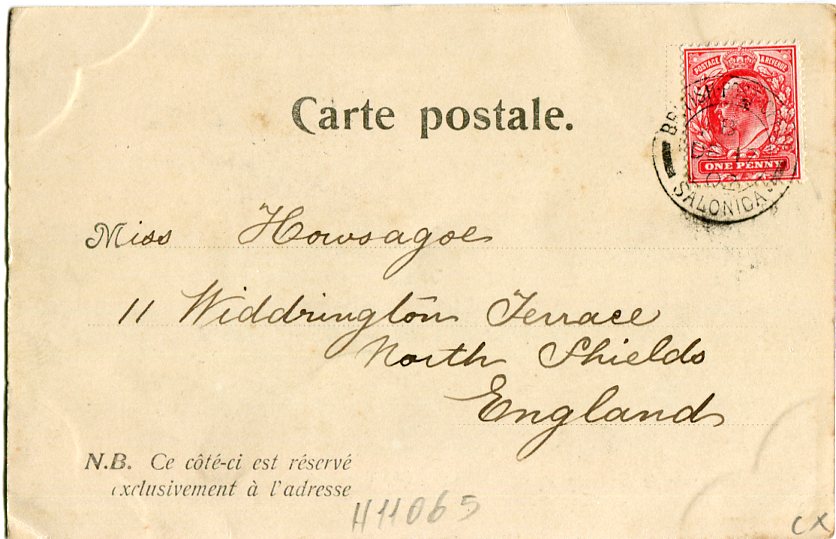 Carte postale.
POSTAGE & REVENUE
ONE PENNY
SALONICA
Miss Howsagoe
11 Widdrington Terrace
North Shields
England
N.B. Ce côté-ci est réservé
exclusivement à l'adresse
H11065
CX